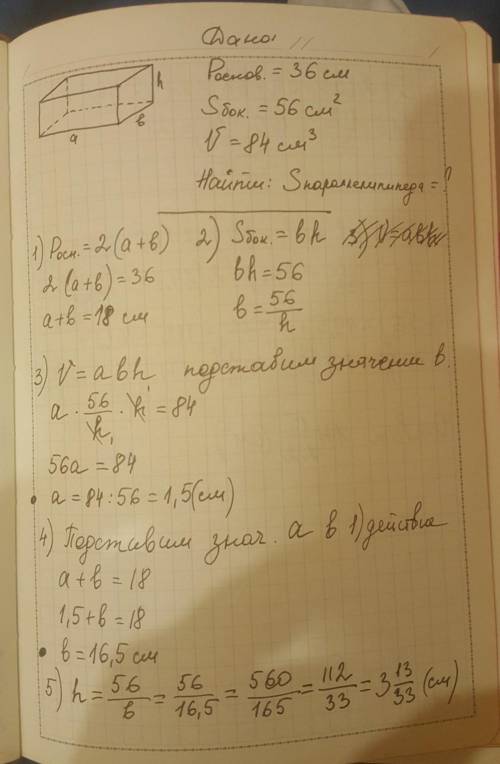 Дано:
Pоснов. = 36 см
h
Sбок. = 56 см²
a
в
V = 84 см³
Найти: Sпараллелипипеда = ?
1) Pосн. = 2(a+в)
2(a+в) = 36
a+в = 18 см
2) Sбок. = вh
вh = 56
в = 56/h
3) V = a в h подставим значении в.
a · 56/h · h = 84
56a = 84
• a = 84 : 56 = 1,5 (см)
4) Подставим знач. a в 1) действие
a + в = 18
1,5 + в = 18
• в = 16,5 см
5) h = 56/в = 56/16,5 = 560/165 = 112/33 = 3 13/33 (см)